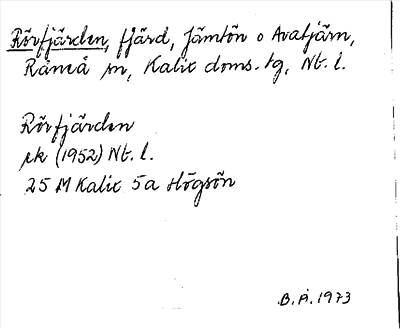 Rörfjärden, fjärd, Jämtön o Avatjärn,
Råneå sn, Kalix doms. tg, Nt. l.
Rörfjärden
ek (1952) Nt. l.
25 M Kalix 5a Högsön
B.Å.1973